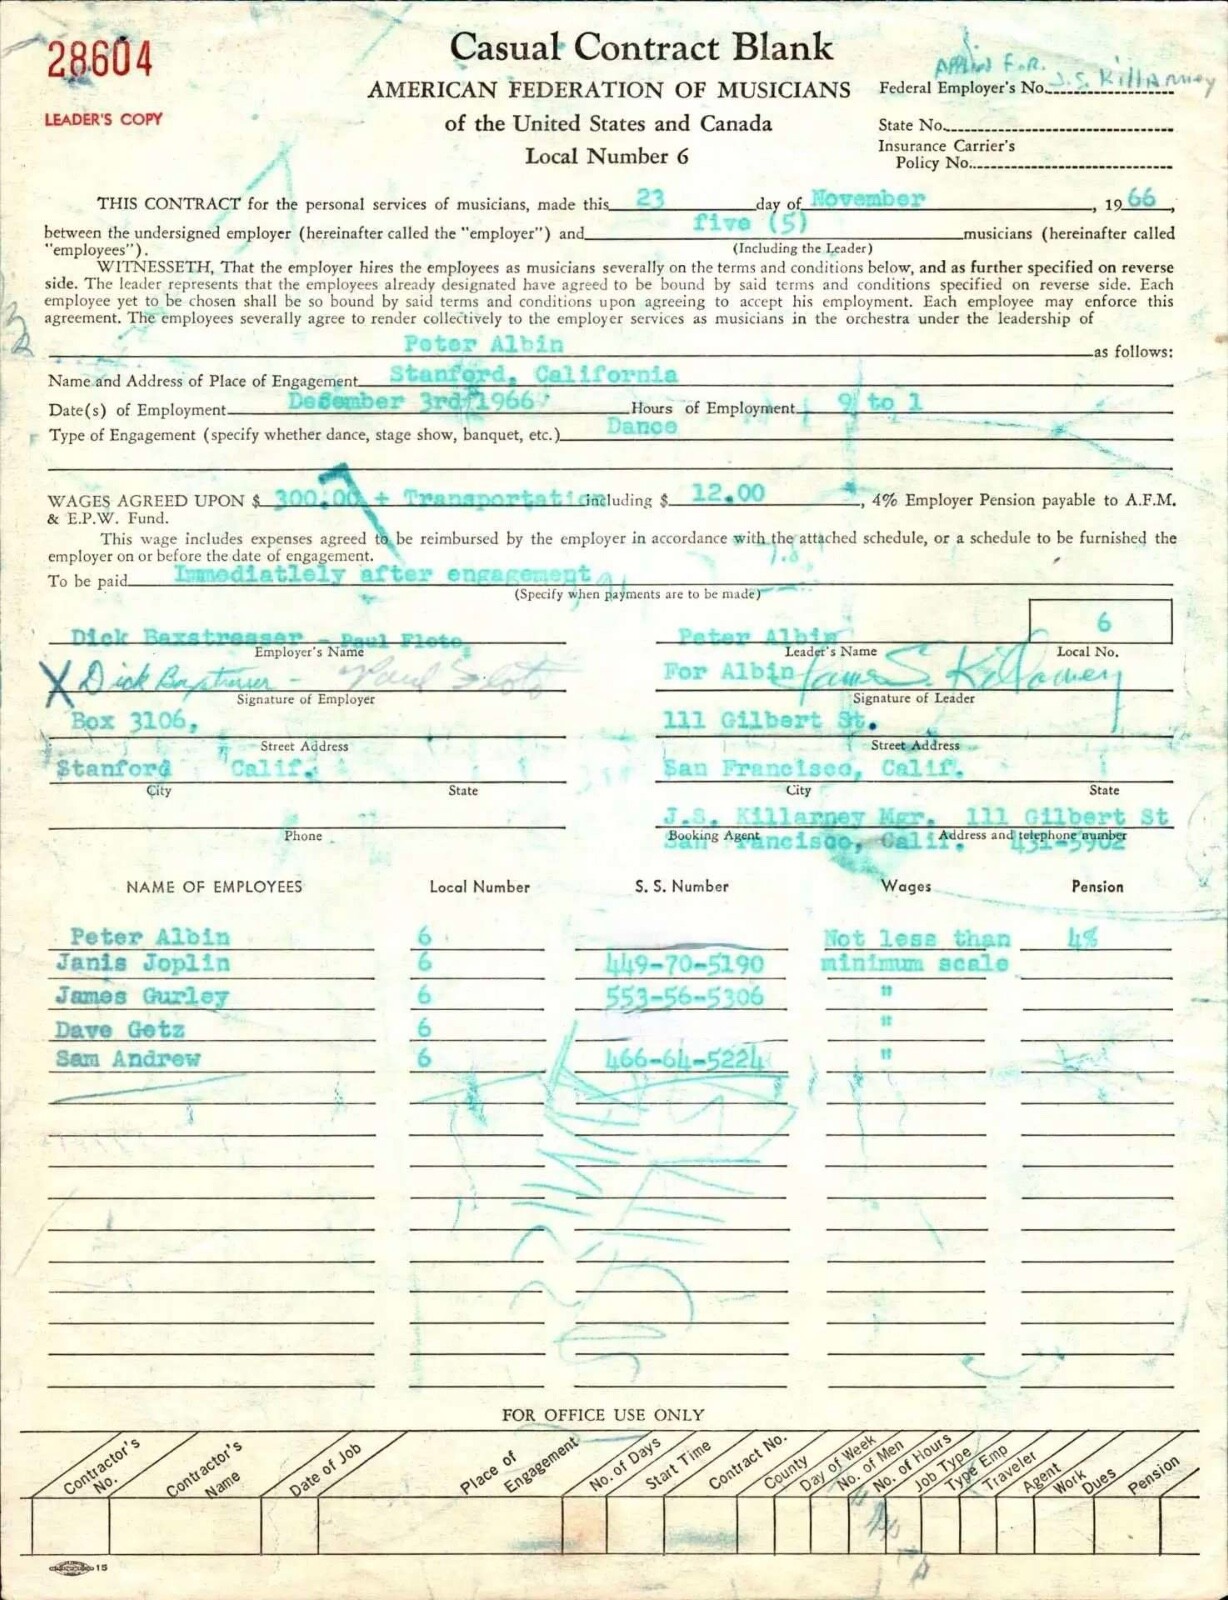 28604
LEADER'S COPY
Casual Contract Blank
AMERICAN FEDERATION OF MUSICIANS
of the United States and Canada
Local Number 6
J.S. Killarney
Federal Employer's No.
State No.
Insurance Carrier's
Policy No.
THIS CONTRACT for the personal services of musicians, made this 23 day of November, 1966,
between the undersigned employer (hereinafter called the "employer") and five (5) musicians (hereinafter called
"employees"). (Including the Leader)
WITNESSETH, That the employer hires the employees as musicians severally on the terms and conditions below, and as further specified on reverse
side. The leader represents that the employees already designated have agreed to be bound by said terms and conditions specified on reverse side. Each
employee yet to be chosen shall be so bound by said terms and conditions upon agreeing to accept his employment. Each employee may enforce this
agreement. The employees severally agree to render collectively to the employer services as musicians in the orchestra under the leadership of
Peter Albin as follows:
Name and Address of Place of Engagement Stanford, California
Date(s) of Employment December 3rd, 1966 Hours of Employment 9 to 1
Type of Engagement (specify whether dance, stage show, banquet, etc.) Dance
WAGES AGREED UPON $ 300.00 + Transportati including $ 12.00, 4% Employer Pension payable to A.F.M.
& E.P.W. Fund.
This wage includes expenses agreed to be reimbursed by the employer in accordance with the attached schedule, or a schedule to be furnished the
employer on or before the date of engagement.
To be paid Immediatlely after engagement
(Specify when payments are to be made)
Dick Baxstresser - Paul Floto Peter Albin 6
Employer's Name Leader's Name Local No.
X Dick Baxstresser - Paul Floto For Albin James S. Killarney
Signature of Employer Signature of Leader
Box 3106, 111 Gilbert St.
Street Address Street Address
Stanford Calif. San Francisco, Calif.
City State City State
J.S. Killarney Mgr. 111 Gilbert St
Phone Booking Agent Address and telephone number
San Francisco, Calif. 431-5902
NAME OF EMPLOYEES Local Number S. S. Number Wages Pension
Peter Albin 6 Not less than 4%
Janis Joplin 6 449-70-5190 minimum scale
James Gurley 6 553-56-5306 "
Dave Getz 6 "
Sam Andrew 6 466-64-5224 "
FOR OFFICE USE ONLY
Contractor's No. Contractor's Name Date of Job Place of Engagement No. of Days Start Time Contract No. County Day of Week No. of Men No. of Hours Job Type Type Emp Traveler Agent Work Dues Pension
15